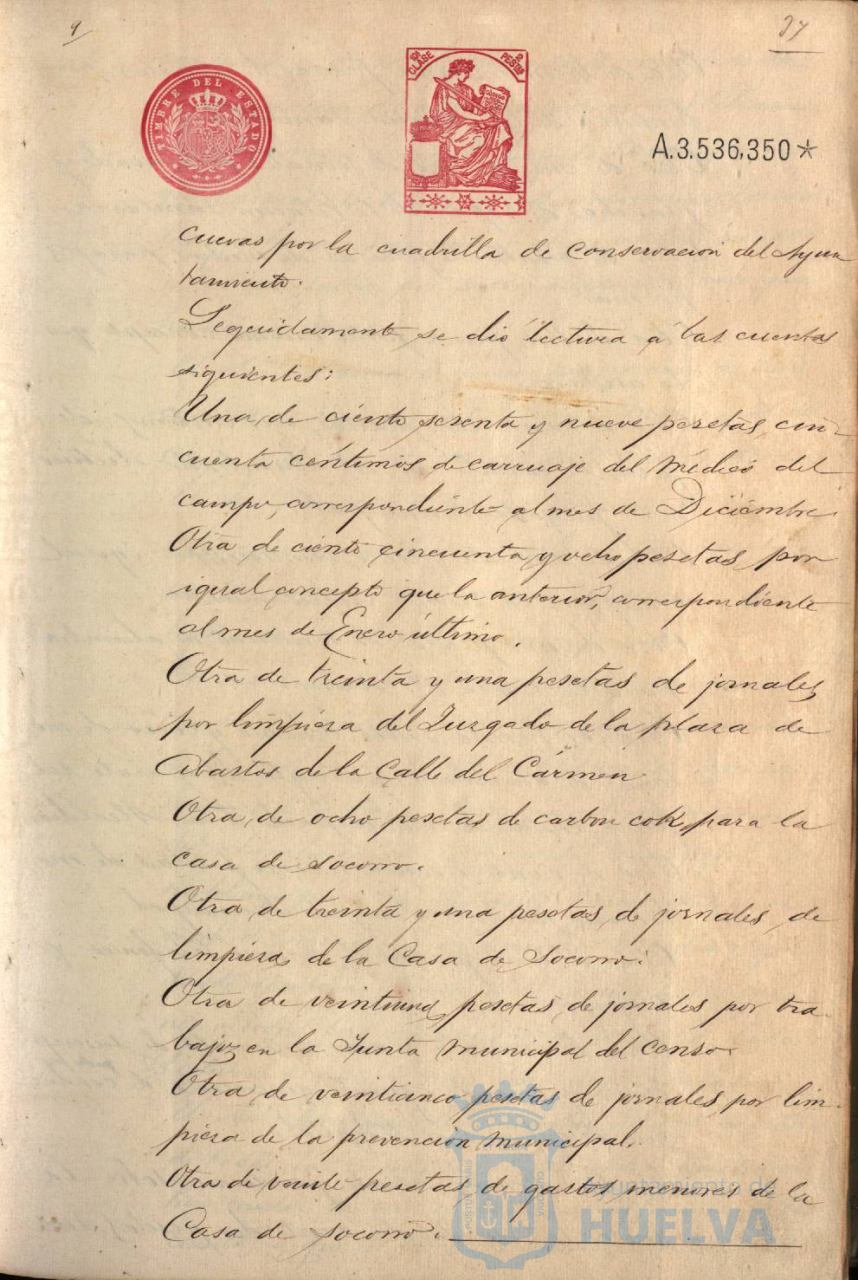 9
37
TIMBRE DEL ESTADO
CLASE
2 PESETAS
A.3.536,350*
cuevas por la cuadrilla de conservacion del Ayun
tamiento.
Seguidamente se dió lectura á las cuentas
siguientes:
Una de ciento sesenta y nueve pesetas, cin-
cuenta centimos de carruaje del Médico del
campo, correspondiente al mes de Diciembre.
Otra de ciento cincuenta y ocho pesetas por
igual concepto que la anterior, correspondiente
al mes de Enero último.
Otra de treinta y una pesetas de jornales
por limpieza del Juzgado de la plaza de
Abastos de la Calle del Cármen
Otra de ocho pesetas de carbon cok para la
casa de socorro.
Otra de treinta y una pesetas de jornales, de
limpieza de la Casa de Socorro.
Otra de veintiuna pesetas de jornales por tra-
bajos en la Junta municipal del censo.
Otra de veinticinco pesetas de jornales por lim-
pieza de la prevencion municipal.
Otra de veinte pesetas de gastos menores de la
Casa de socorro.
Ayuntamiento de
HUELVA